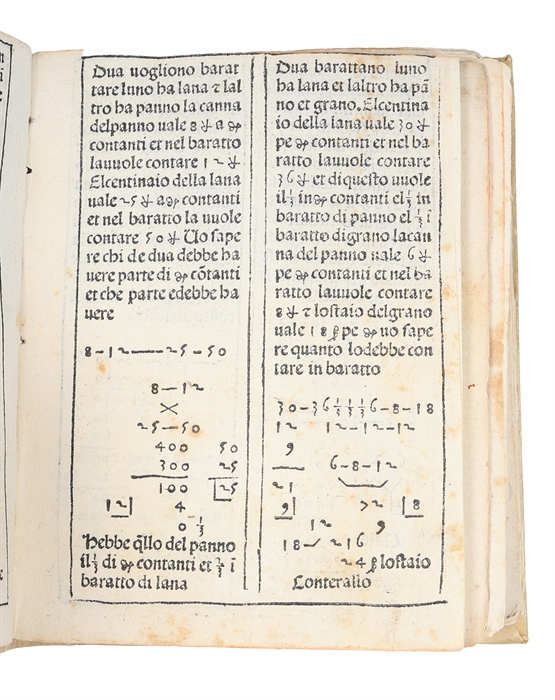 Dua uogliono barat
tare luno ha lana ⁊ lal
tro ha panno la canna
delpanno uale 8 a
contanti et nel baratto
lauuole contare 12
Elcentinaio della lana
uale 25 a contanti
et nel baratto la uuole
contare 50 Uo sape
re chi de dua debbe ha
uere parte di cōtanti
et che parte edebbe ha
uere
8—12——25—50
8—12
25—50
400 50
300 25
100 25
12 4
0 ⅓
Hebbe q̄llo del panno
il ⅓ di contanti et ⅔ ī
baratto di lana
Dua barattano luno
ha lana et laltro ha pā
no et grano. Elcentina
io della lana uale 30
pe contanti et nel ba
ratto lauuole contare
36 et di questo uuole
il ⅓ in contanti el ⅓ in
baratto di panno el ⅓ ī
baratto di grano lacan
na del panno uale 6
pe contanti et nel ba
ratto lauuole contare
8 ⁊ lostaio delgrano
uale 18 pe uo sape
re quanto lodebbe con
tare in baratto
30—36 ⅓ ⅓ ⅓ 6—8—18
12 12—12—12
9
6—8—12
21
9 72 8
12 9
18 216
24 lostaio
Conterallo